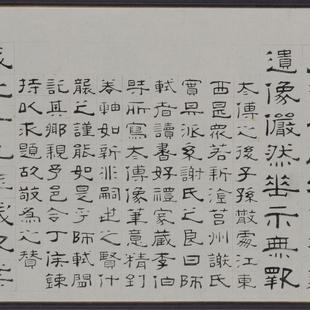 遺像儼然垂示無斁
太傅之後子孫散處江東
西眾若新淦州謝氏
實派謝氏之良曰師
軾者讀書好禮家藏李伯
時所寫太傅像筆意精到
卷軸如新非嗣世之賢什
襲之謹能如是乎師軾
其鄉親邑令丁侯鍊
持以求題故敬為之贊